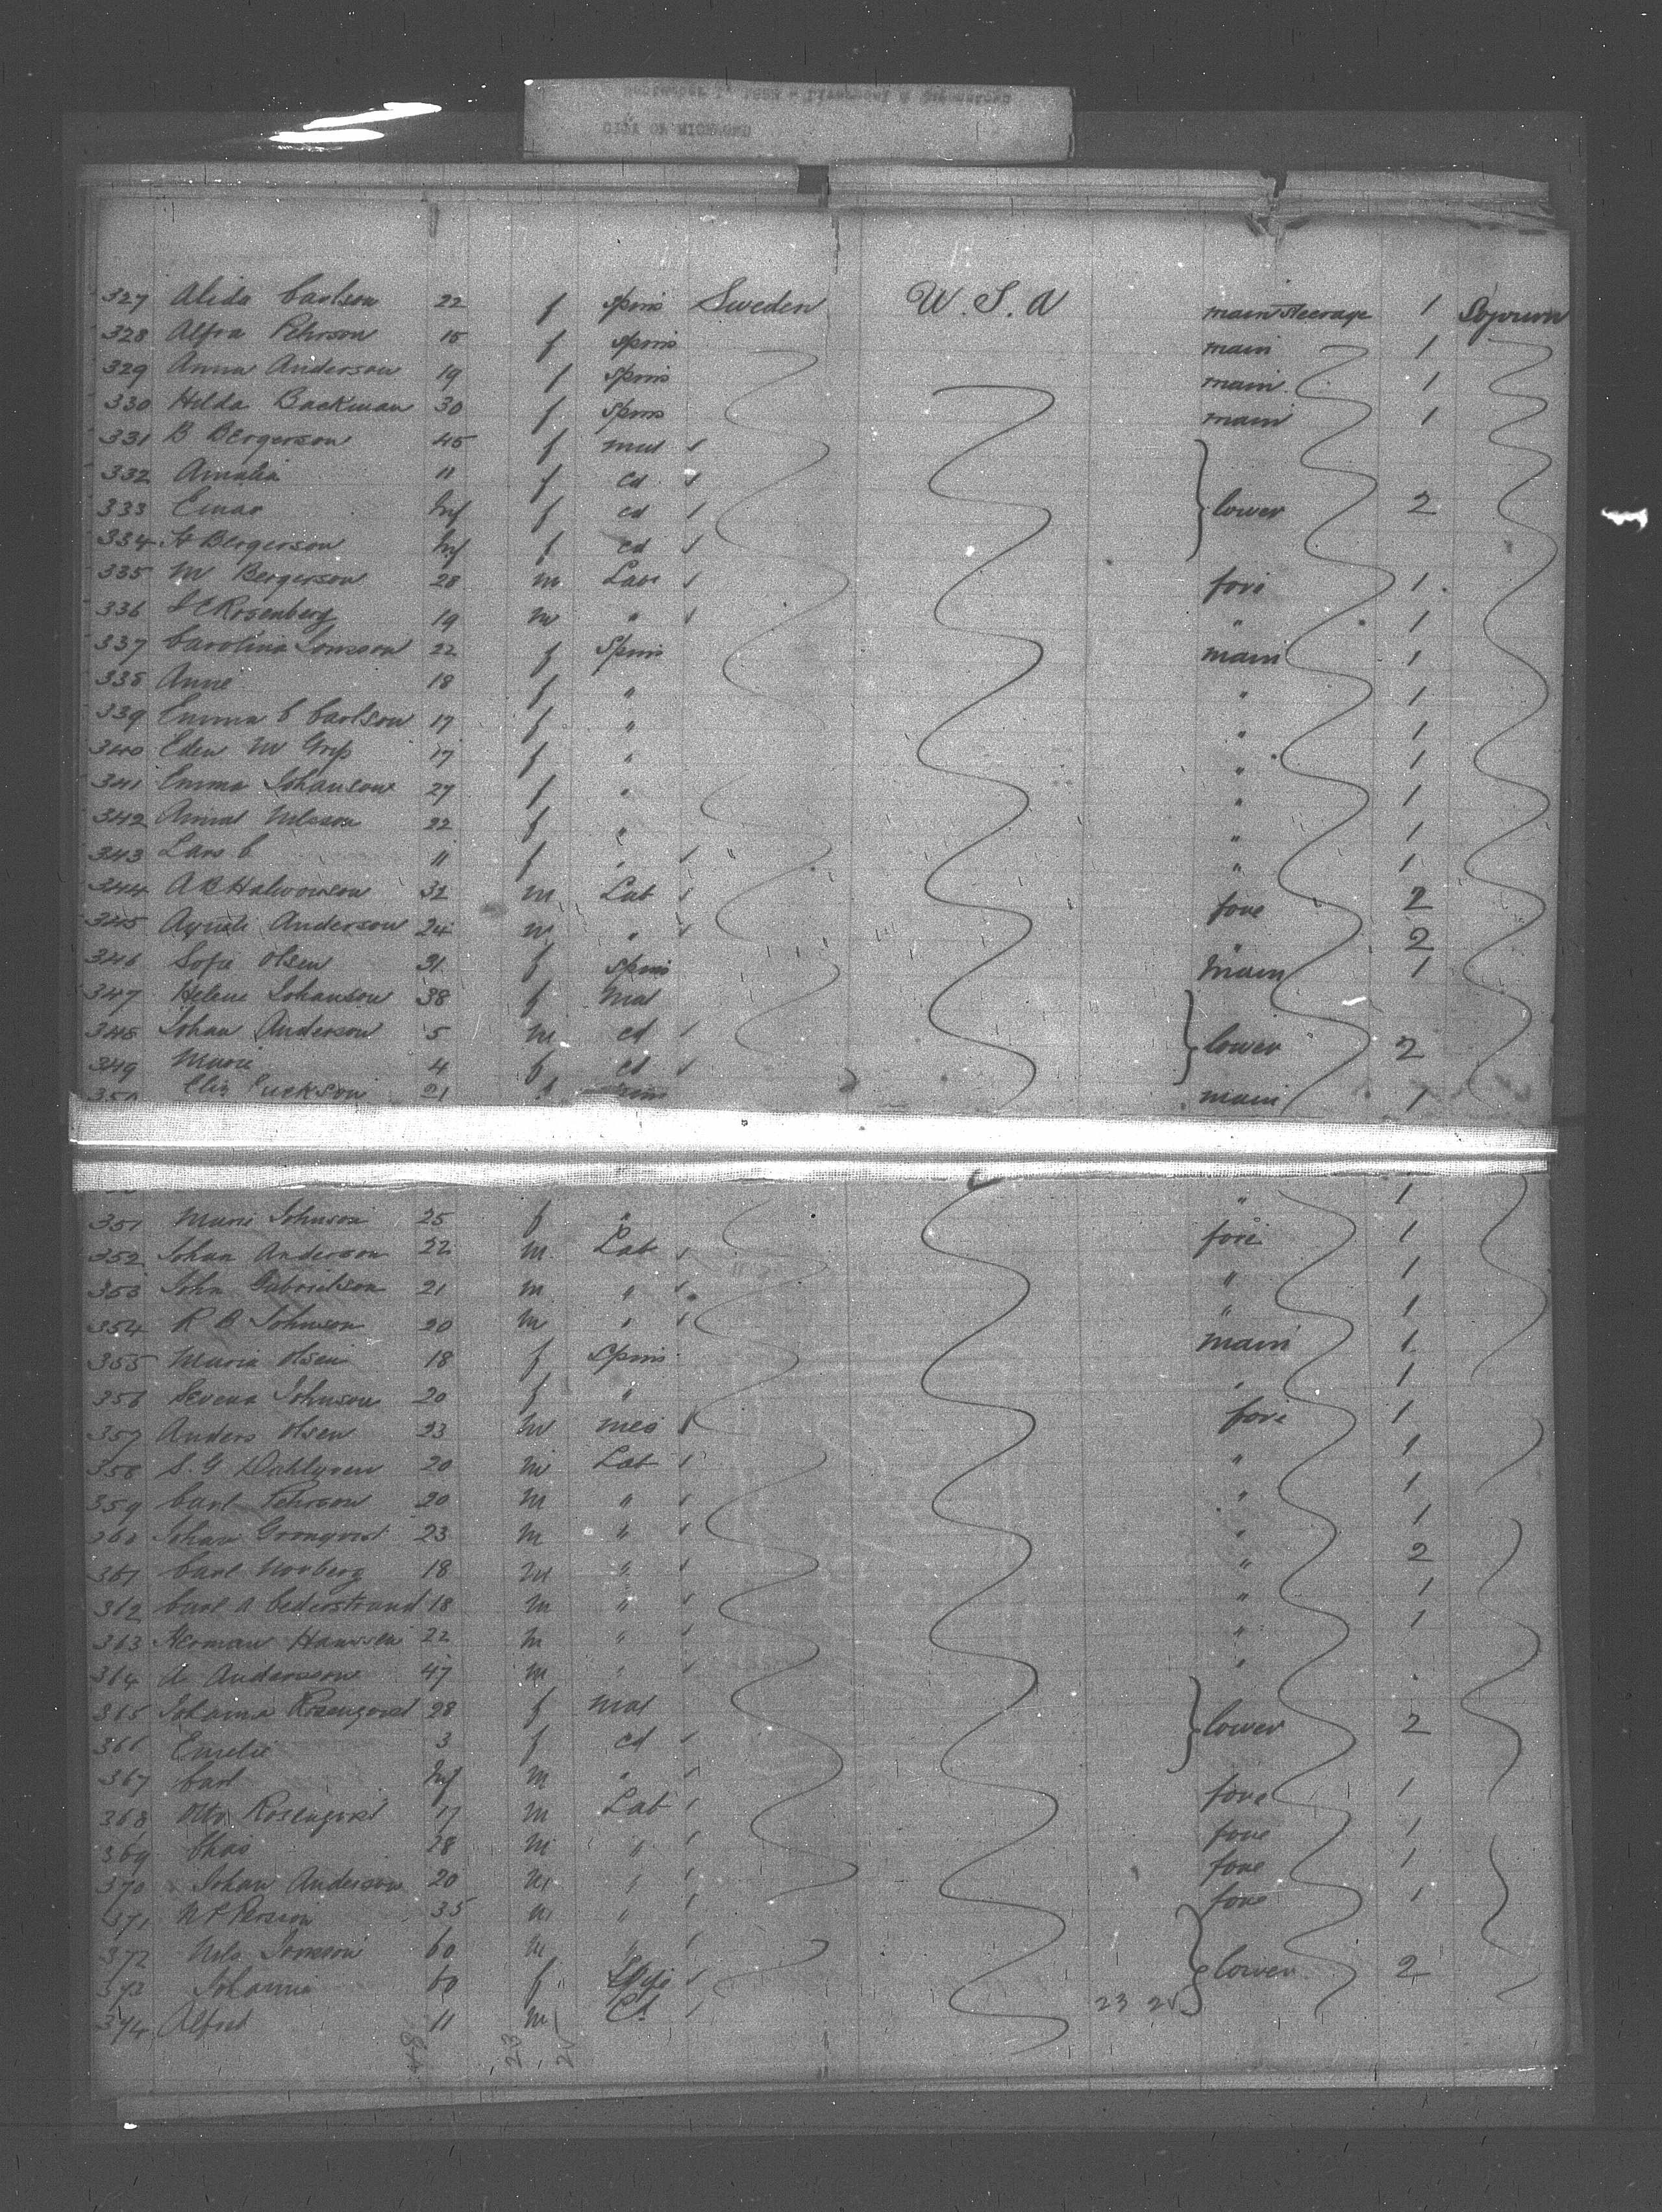 CITY OF RICHMOND
327 Alida Carlson 22 f spins Sweden U.S.A main Steerage 1 Sojourn
328 Alfra Pehrson 15 f spins main 1
329 Anna Anderson 19 f spins main 1
330 Hilda Backman 30 f spins main 1
331 B Bergerson 45 f
332 Amalia 11 f cd
333 Einar Inf f cd lower 2
334 H Bergerson Inf f cd
335 M Bergerson 28 m Lab fore 1
336 Rosenberg 19 m " " 1
337 Carolina Jonsson 22 f Spins main 1
338 Anne 18 f " " 1
339 Emma C Carlson 17 f " " 1
340 Eden M Grip 17 f " " 1
341 Emma Johanson 27 f " " 1
342 Nilsson 22 f " " 1
343 Lars C 11 f " " 1
344 A B Halvorson 32 m Lab fore 2
345 Anderson 24 m " " 2
346 Sofie Olsen 31 f spins main 1
347 Helene Johanson 38 f mat
348 Johan Anderson 5 m cd lower 2
349 Marie 4 f cd
350 21 f main 1
351 Marie Johnson 25 f " " 1
352 Johan Anderson 22 m Lab fore 1
353 John Gabrielson 21 m " " 1
354 R B Johnson 20 m " " 1
355 Maria Olsen 18 f Spins main 1
356 Johnson 20 f " " 1
357 Anders Olsen 23 m fore 1
358 S. G Dahlgren 20 m Lab " 1
359 Carl Pehrson 20 m " " 1
360 Johan Gronqvist 23 m " " 1
361 Carl Norberg 18 m " " 2
362 Carl A Cederstrand 18 m " " 1
363 Herman Hanssen 22 m " " 1
364 A Andersson 47 m " "
365 Johanna Rosenqvist 28 f mat
366 Emelie 3 f cd lower 2
367 Carl Inf m "
368 Otto Rosenqvist 17 m Lab fore 1
369 Chas 28 m " fore 1
370 Johan Anderson 20 m " fore 1
371 N P Person 35 m " fore 1
372 Nils Jonsson 60 m "
373 Johanna 60 f lower 2
374 Alfred 11 m Cd 23 25
48 23 25